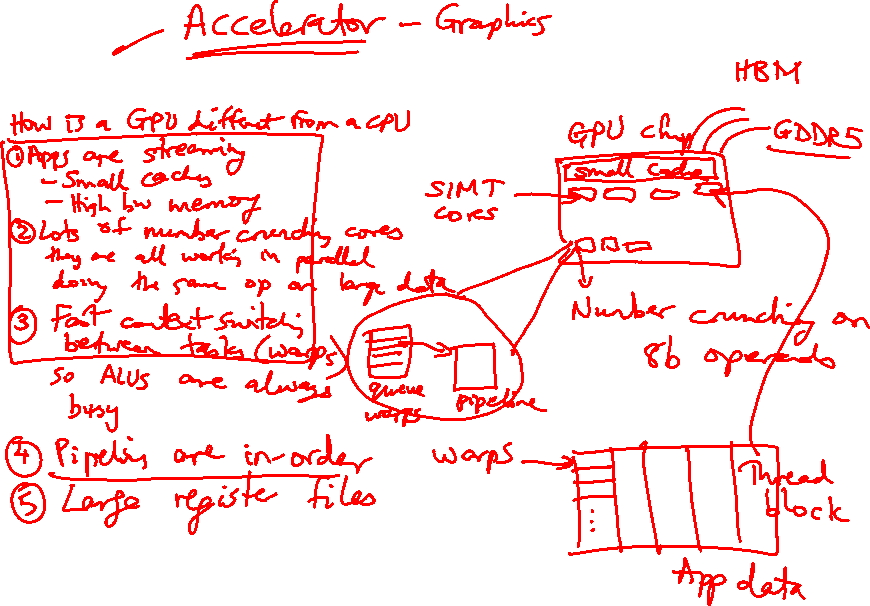 Accelerator - Graphics
How is a GPU different from a CPU
① Apps are streaming
- Small caches
- High bw memory
② Lots of number crunching cores
they are all working in parallel
doing the same op on large data
③ Fast context switching
between tasks (warps
so ALUs are always
busy
④ Pipelines are in-order
⑤ Large register files
queue
warps
pipeline
HBM
GPU chip
GDDR5
small cache
SIMT
cores
Number crunching on
8b operands
warps
Thread
block
App data